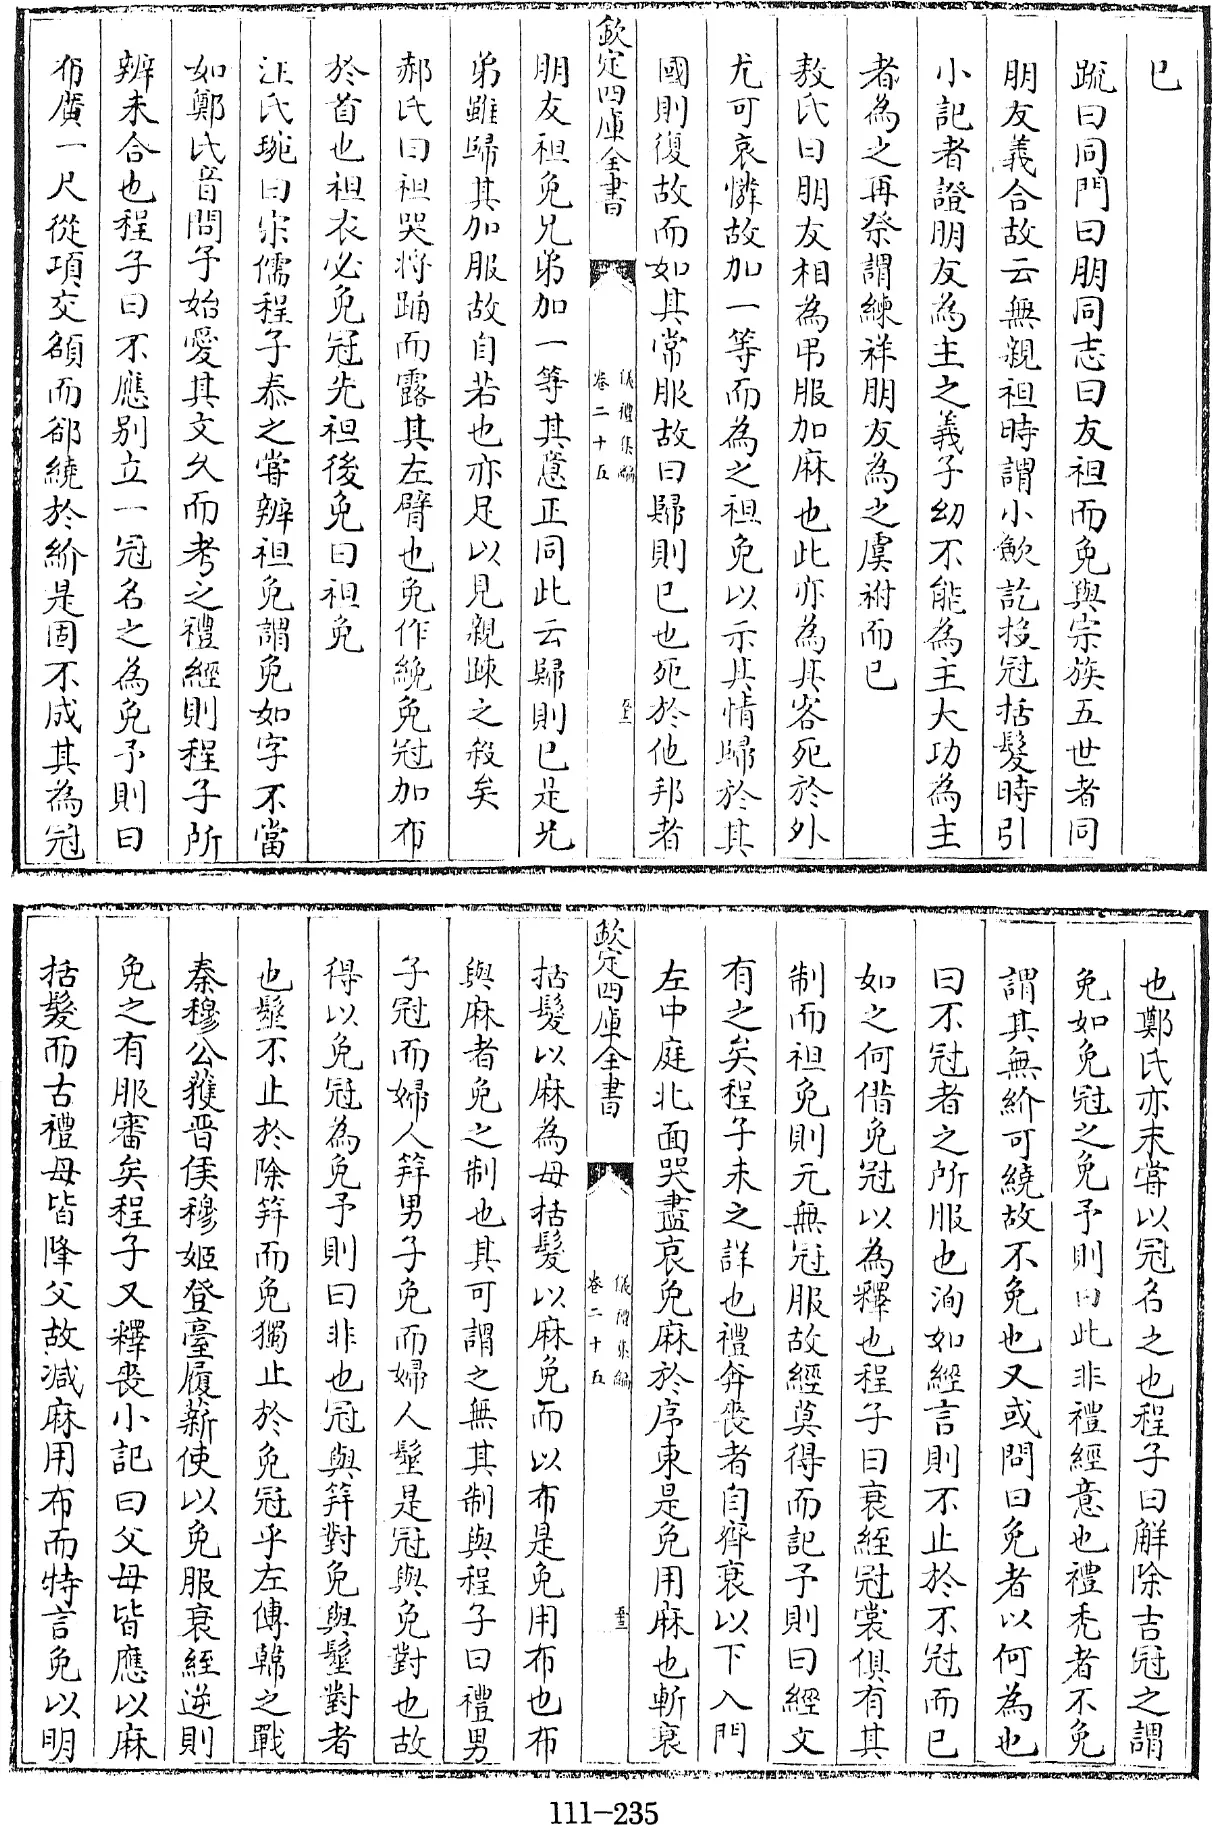 已
疏曰同門曰朋同志曰友袒而免與宗族五世者同
朋友義合故云無親袒時謂小斂訖投冠括髮時引
小記者證朋友為主之義子幼不能為主大功為主
者為之再祭謂練祥朋友為之虞祔而已
敖氏曰朋友相為弔服加麻也此亦為其客死於外
尤可哀憐故加一等而為之袒免以示其情歸於其
國則復故而如其常服故曰歸則已也死於他邦者
欽定四庫全書
儀禮集編
卷二十五
朋友袒免兄弟加一等其意正同此云歸則已是兄
弟雖歸其加服故自若也亦足以見親疎之殺矣
郝氏曰袒哭將踊而露其左臂也免作絻免冠加布
於首也袒衣必免冠先袒後免曰袒免
汪氏琬曰宗儒程子泰之嘗辨袒免謂免如字不當
如鄭氏音問予始愛其文久而考之禮經則程子所
辨未合也程子曰不應别立一冠名之為免予則曰
布廣一尺從項交額而郤繞於紒是固不成其為冠
也鄭氏亦未嘗以冠名之也程子曰解除吉冠之謂
免如免冠之免予則曰此非禮經意也禮秃者不免
謂其無紒可繞故不免也又或問曰免者以何為也
曰不冠者之所服也洵如經言則不止於不冠而已
如之何借免冠以為釋也程子曰衰絰冠裳俱有其
制而袒免則元無冠服故經莫得而記予則曰經文
有之矣程子未之詳也禮奔喪者自齊衰以下入門
左中庭北面哭盡哀免麻於序東是免用麻也斬衰
欽定四庫全書
儀禮集編
卷二十五
括髮以麻為母括髮以麻免而以布是免用布也布
與麻者免之制也其可謂之無其制與程子曰禮男
子冠而婦人筓男子免而婦人髽是冠與免對也故
得以免冠為免予則曰非也冠與筓對免與髽對者
也髽不止於除筓而免獨止於免冠乎左傳韓之戰
秦穆公獲晉侯穆姬登臺履薪使以免服衰絰逆則
免之有服審矣程子又釋喪小記曰父母皆應以麻
括髮而古禮母皆降父故減麻用布而特言免以明
111-235